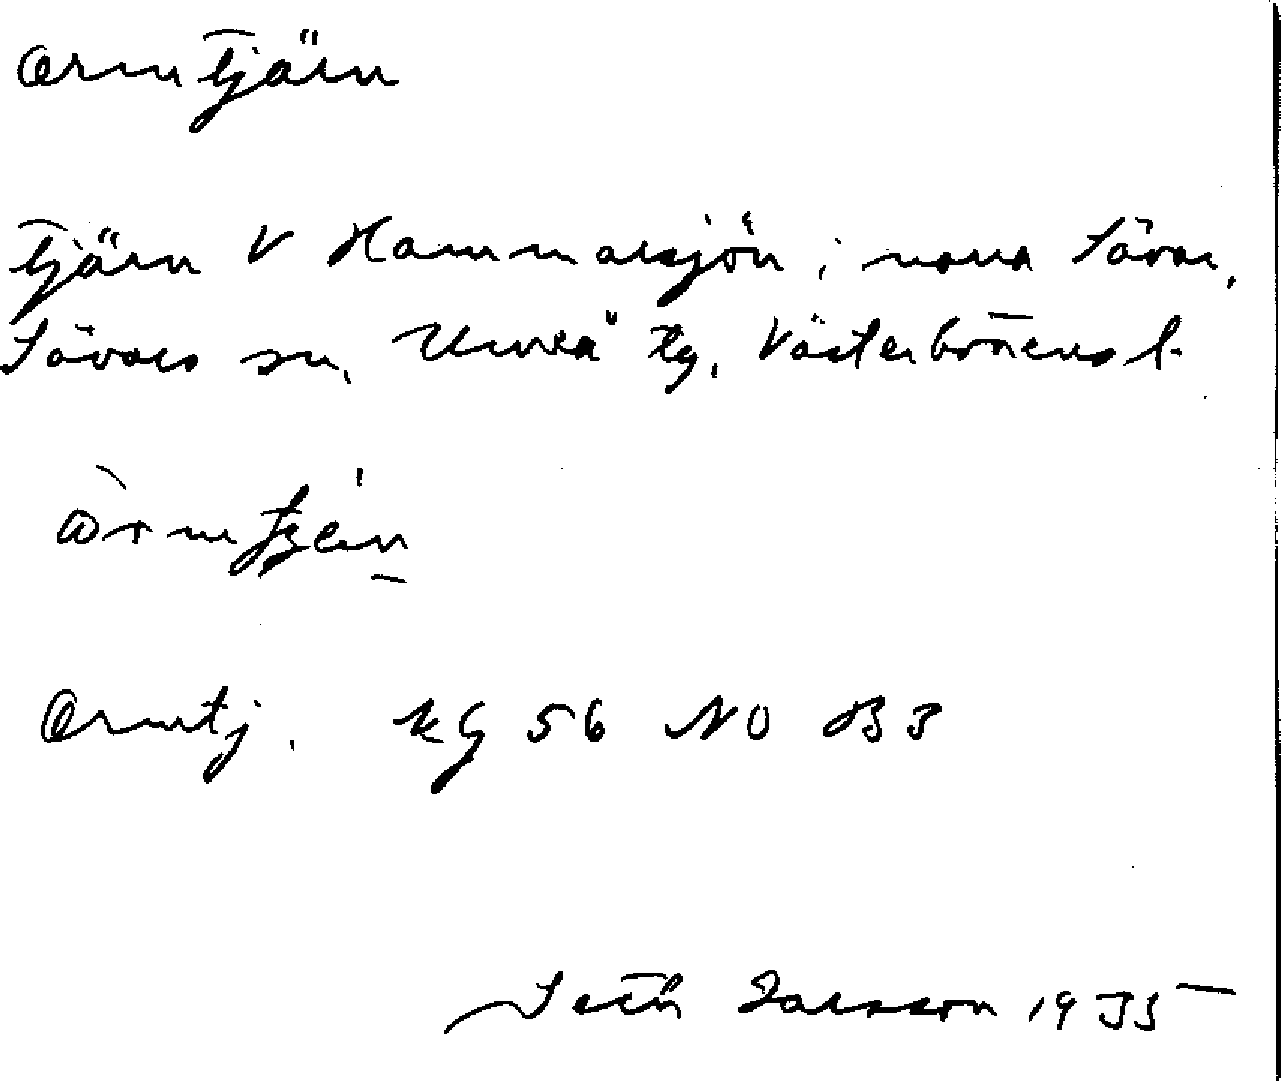 Ormtjärn
Tjärn V Hammarsjön i norra Sävar,
Sävars sn, Umeå tg, Västerbottens l.
Ormtj. kg 56 NO B3
Larsson 1935